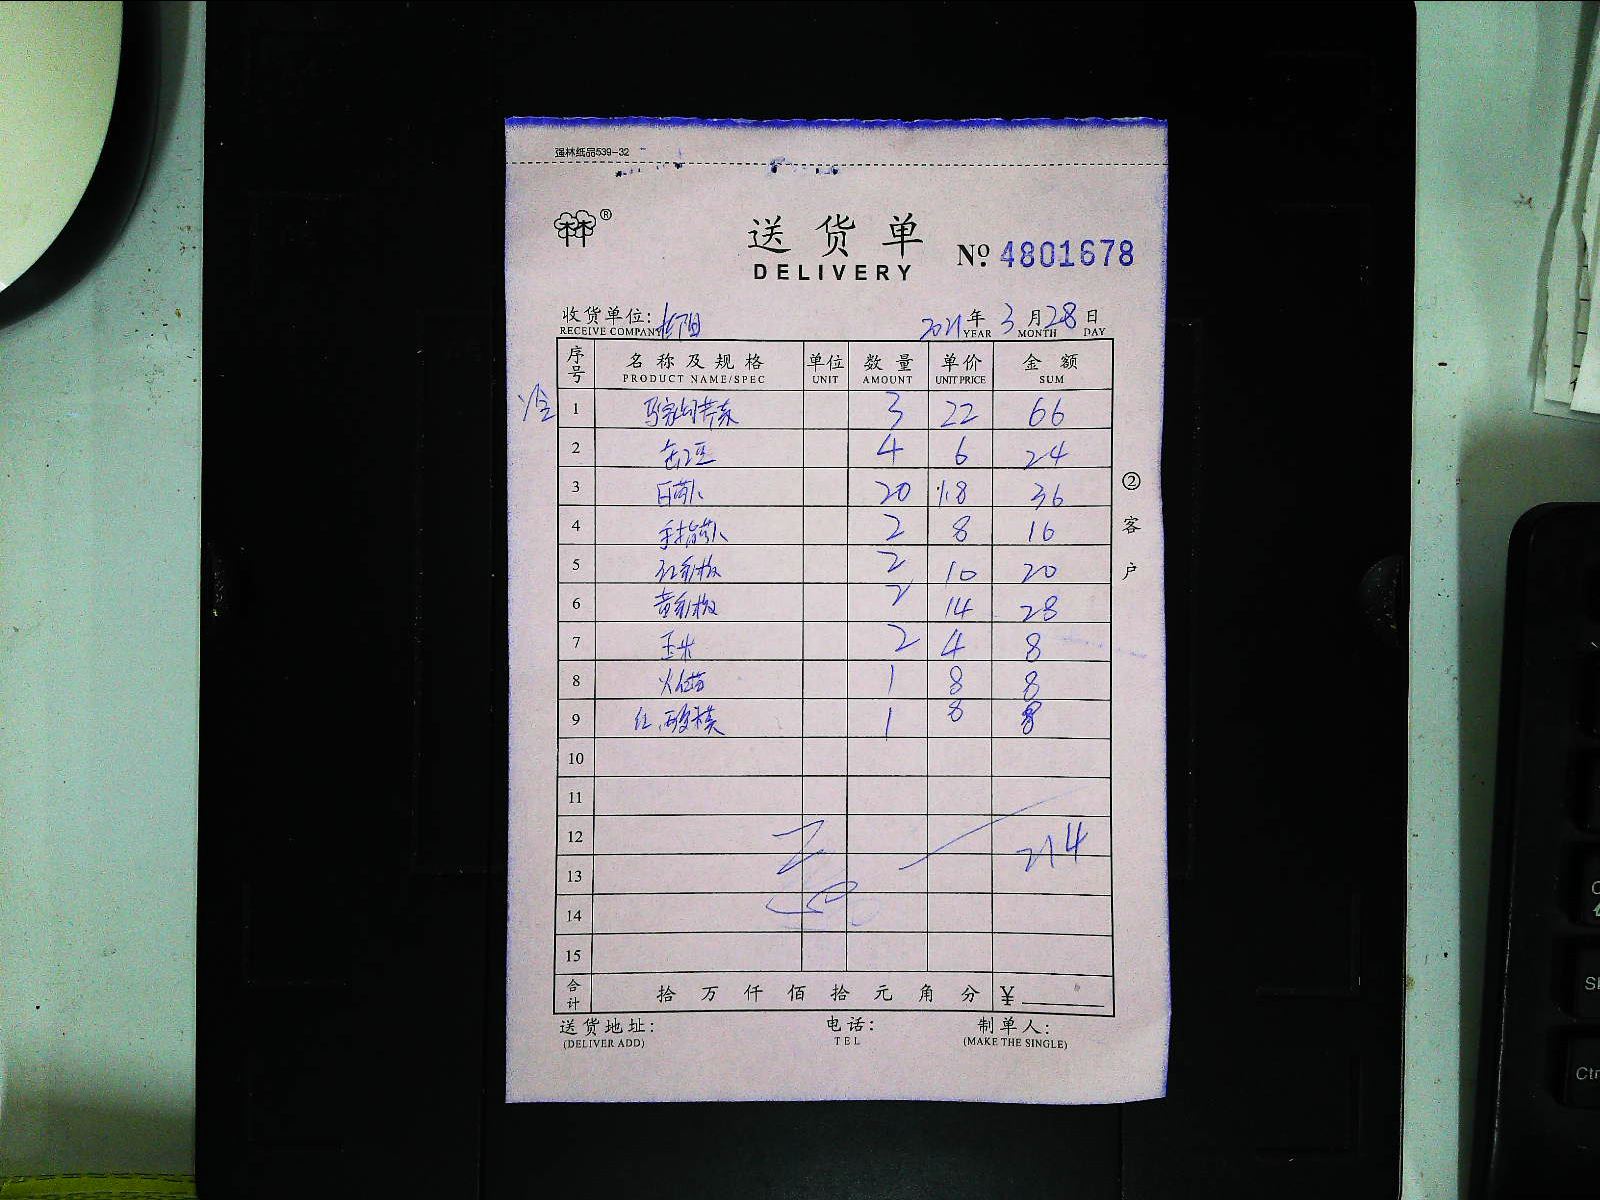 强林纸品539-32
林林®
送货单
DELIVERY
№ 4801678
收货单位:
RECEIVE COMPANY
2021年3月28日
YEAR MONTH DAY
序号 名称及规格 单位 数量 单价 金额
PRODUCT NAME/SPEC UNIT AMOUNT UNIT PRICE SUM
冷
1 3 22 66
2 豆 4 6 24
3 白萝卜 20 1.8 36
4 手指萝卜 2 8 16
5 红彩椒 2 10 20
6 黄彩椒 2 14 28
7 玉米 2 4 8
8 1 8 8
9 1 8 8
10
11
12 214
13
14
15
合计 拾万仟佰拾元角分 ¥
②客户
送货地址: 电话: 制单人:
(DELIVER ADD) TEL (MAKE THE SINGLE)